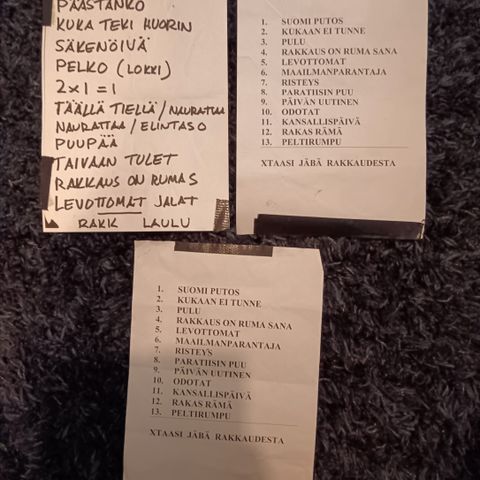 PÄÄSTÄNKÖ
KUKA TEKI HUORIN
SÄKENÖIVÄ
PELKO (LOKKI)
2x1=1
TÄÄLLÄ TIELLÄ / NAURATTAA
NAURATTAA / ELINTASO
PUUPÄÄ
TAIVAAN TULET
RAKKAUS ON RUMA S
LEVOTTOMAT JALAT
RAKK LAULU
1. SUOMI PUTOS
2. KUKAAN EI TUNNE
3. PULU
4. RAKKAUS ON RUMA SANA
5. LEVOTTOMAT
6. MAAILMANPARANTAJA
7. RISTEYS
8. PARATIISIN PUU
9. PÄIVÄN UUTINEN
10. ODOTAT
11. KANSALLISPÄIVÄ
12. RAKAS RÄMÄ
13. PELTIRUMPU
XTAASI JÄBÄ RAKKAUDESTA
1. SUOMI PUTOS
2. KUKAAN EI TUNNE
3. PULU
4. RAKKAUS ON RUMA SANA
5. LEVOTTOMAT
6. MAAILMANPARANTAJA
7. RISTEYS
8. PARATIISIN PUU
9. PÄIVÄN UUTINEN
10. ODOTAT
11. KANSALLISPÄIVÄ
12. RAKAS RÄMÄ
13. PELTIRUMPU
XTAASI JÄBÄ RAKKAUDESTA